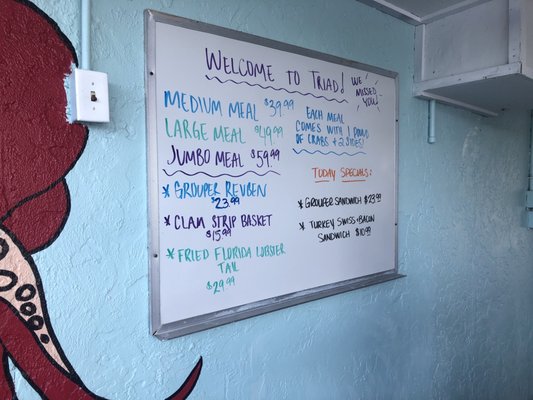 WELCOME TO TRIAD!
WE
MISSED
YOU!
MEDIUM MEAL $39.99
LARGE MEAL $49.99
JUMBO MEAL $59.99
EACH MEAL
COMES WITH 1 POUND
OF CRABS + 2 SIDES!
* GROUPER REUBEN
$23.99
* CLAM STRIP BASKET
$15.99
* FRIED FLORIDA LOBSTER
TAIL
$29.99
TODAY SPECIALS:
* GROUPER SANDWICH $23.99
* TURKEY SWISS + BACON
SANDWICH $10.99